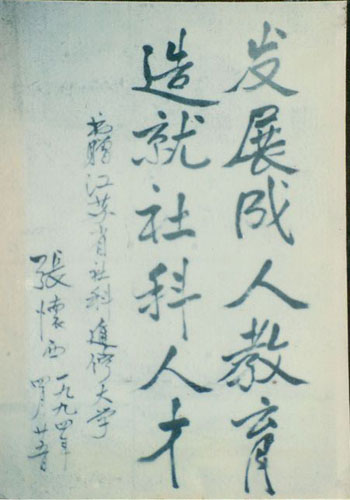 发展成人教育
造就社科人才
书赠江苏省社科进修大学
張懷西
一九九四年
四月廿五日